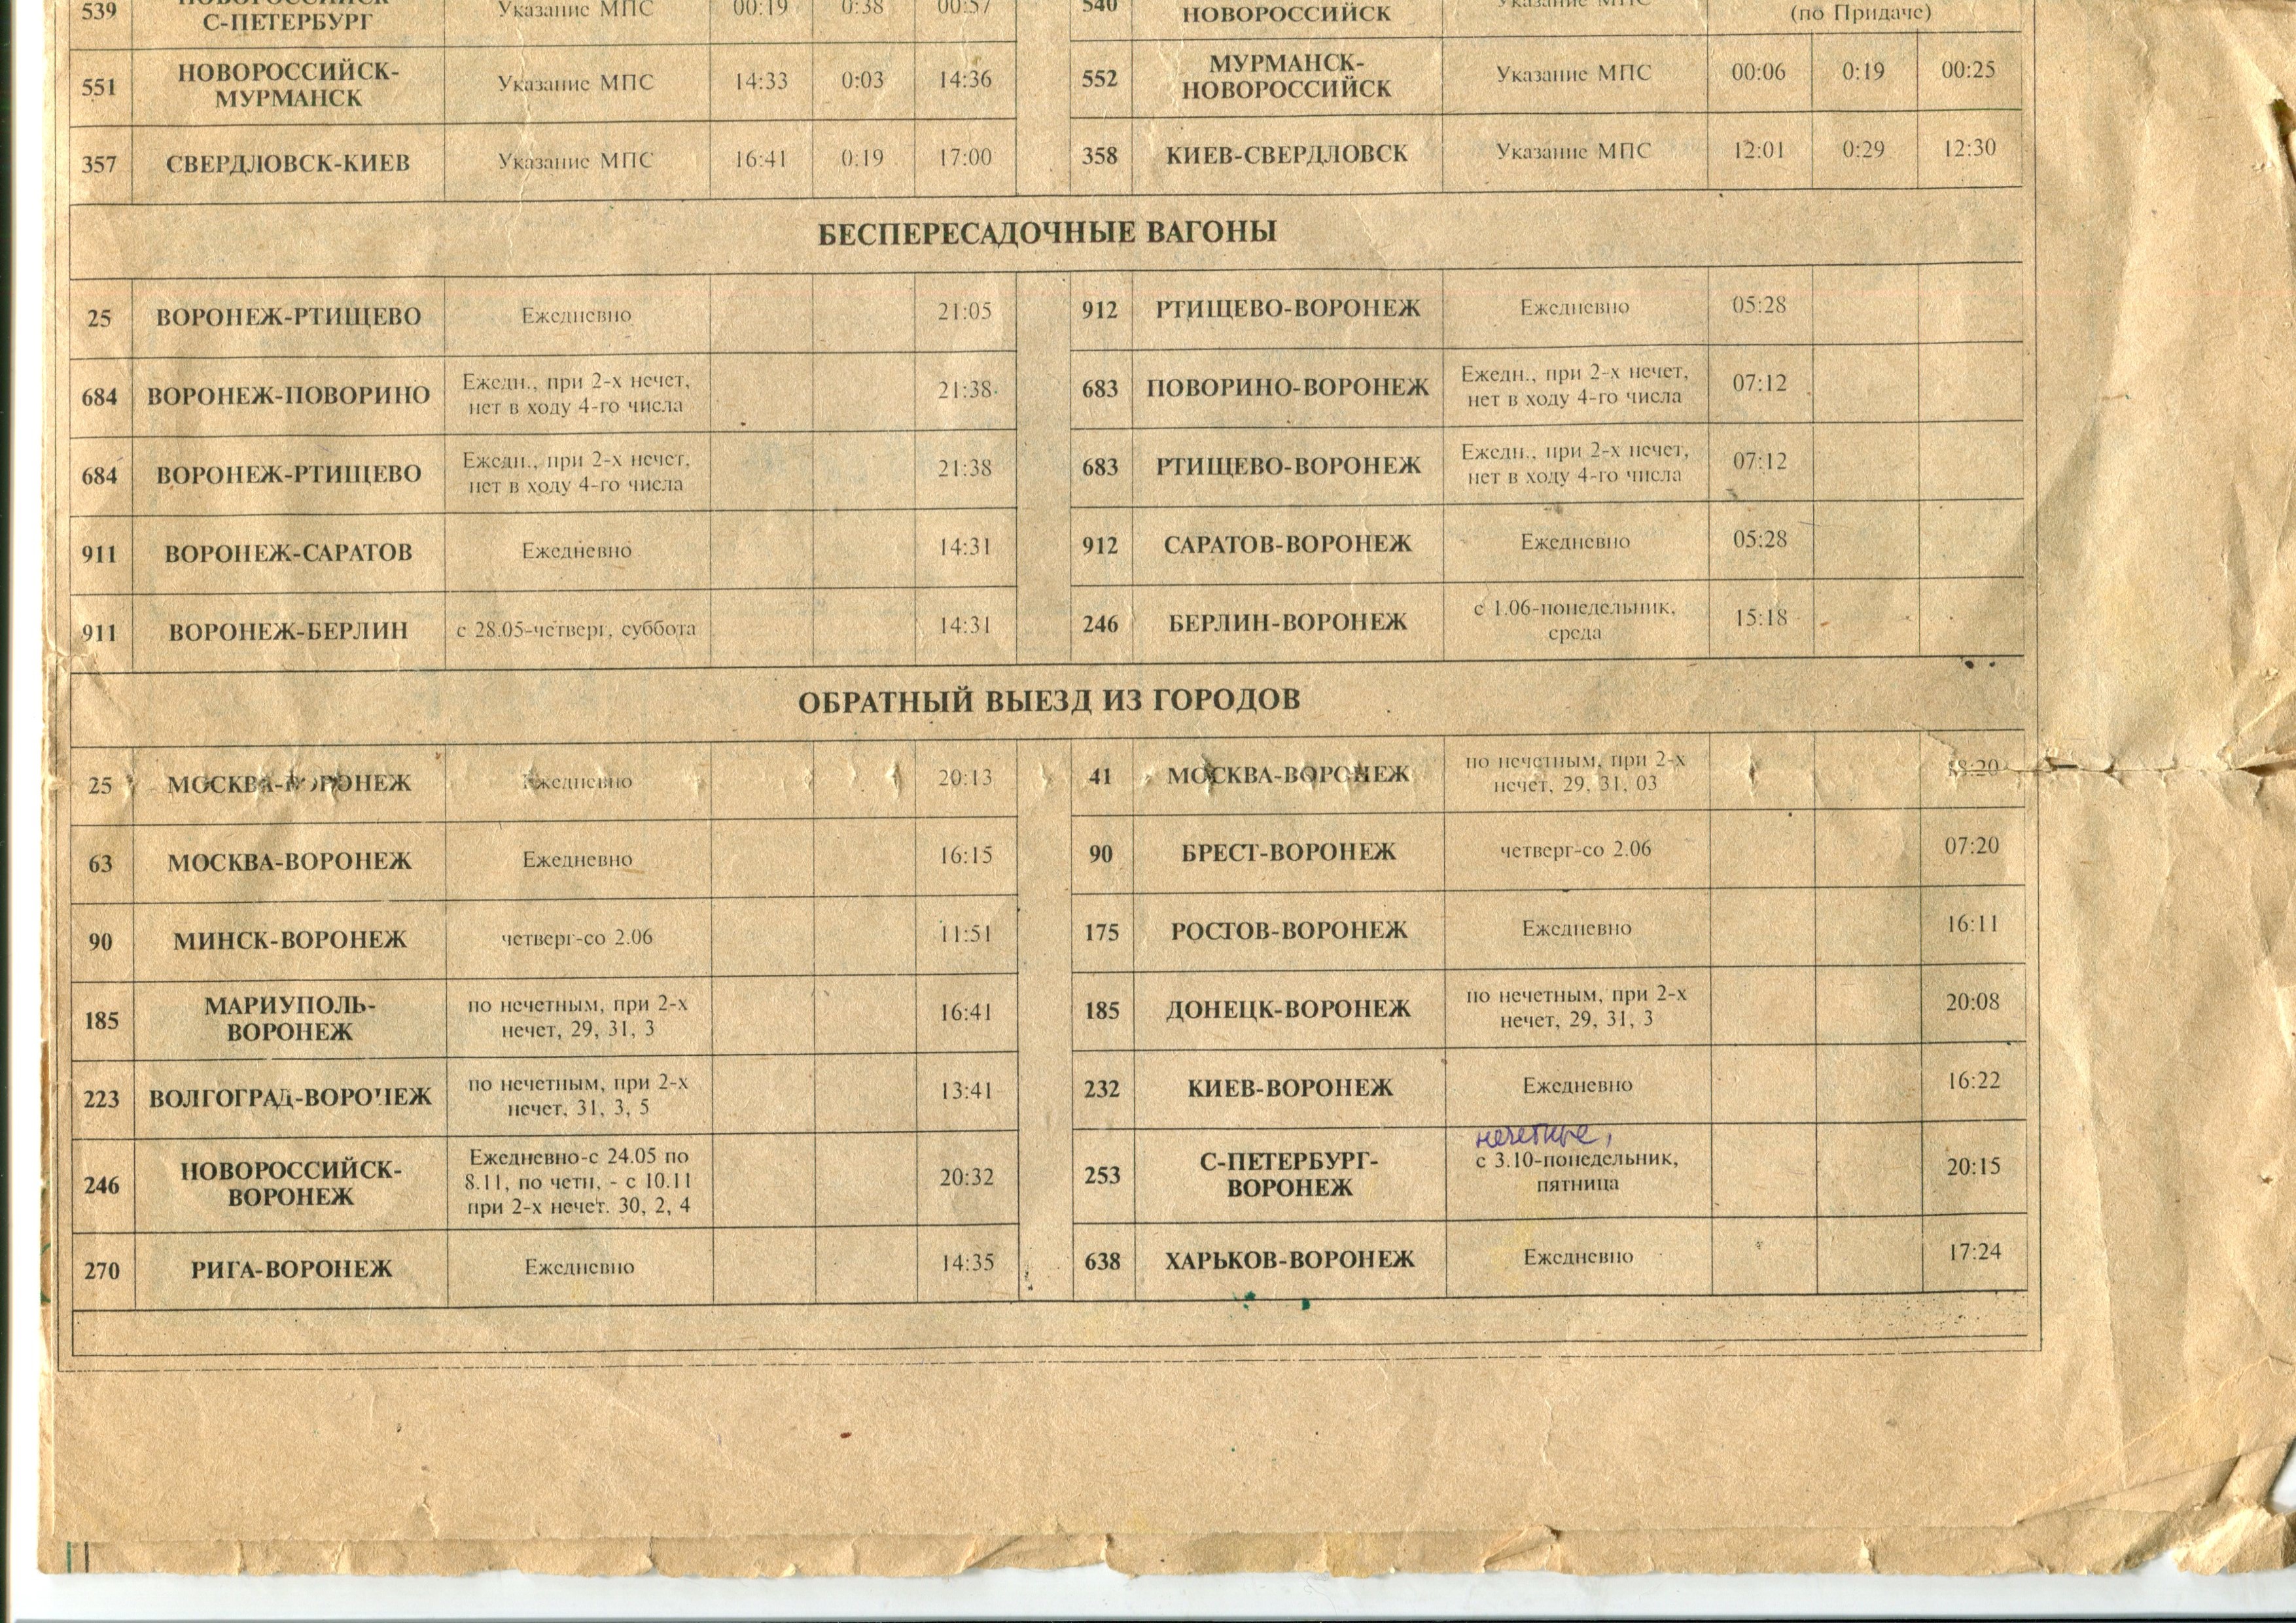 539
С-ПЕТЕРБУРГ
Указание МПС 00:19 0:38 00:57
540
НОВОРОССИЙСК
Указание МПС
(по Придаче)
551
НОВОРОССИЙСК-
МУРМАНСК
Указание МПС 14:33 0:03 14:36
552
МУРМАНСК-
НОВОРОССИЙСК
Указание МПС 00:06 0:19 00:25
357 СВЕРДЛОВСК-КИЕВ Указание МПС 16:41 0:19 17:00
358 КИЕВ-СВЕРДЛОВСК Указание МПС 12:01 0:29 12:30
БЕСПЕРЕСАДОЧНЫЕ ВАГОНЫ
25 ВОРОНЕЖ-РТИЩЕВО Ежедневно 21:05
912 РТИЩЕВО-ВОРОНЕЖ Ежедневно 05:28
684 ВОРОНЕЖ-ПОВОРИНО
Ежедн., при 2-х нечет,
нет в ходу 4-го числа
21:38
683 ПОВОРИНО-ВОРОНЕЖ
Ежедн., при 2-х нечет,
нет в ходу 4-го числа
07:12
684 ВОРОНЕЖ-РТИЩЕВО
Ежедн., при 2-х нечет,
нет в ходу 4-го числа
21:38
683 РТИЩЕВО-ВОРОНЕЖ
Ежедн., при 2-х нечет,
нет в ходу 4-го числа
07:12
911 ВОРОНЕЖ-САРАТОВ Ежедневно 14:31
912 САРАТОВ-ВОРОНЕЖ Ежедневно 05:28
911 ВОРОНЕЖ-БЕРЛИН с 28.05-четверг, суббота 14:31
246 БЕРЛИН-ВОРОНЕЖ
с 1.06-понедельник,
среда
15:18
ОБРАТНЫЙ ВЫЕЗД ИЗ ГОРОДОВ
25 МОСКВА-ВОРОНЕЖ Ежедневно 20:13
41 МОСКВА-ВОРОНЕЖ
по нечетным, при 2-х
нечет, 29, 31, 03
63 МОСКВА-ВОРОНЕЖ Ежедневно 16:15
90 БРЕСТ-ВОРОНЕЖ четверг-со 2.06 07:20
90 МИНСК-ВОРОНЕЖ четверг-со 2.06 11:51
175 РОСТОВ-ВОРОНЕЖ Ежедневно 16:11
185
МАРИУПОЛЬ-
ВОРОНЕЖ
по нечетным, при 2-х
нечет, 29, 31, 3
16:41
185 ДОНЕЦК-ВОРОНЕЖ
по нечетным, при 2-х
нечет, 29, 31, 3
20:08
223 ВОЛГОГРАД-ВОРОНЕЖ
по нечетным, при 2-х
нечет, 31, 3, 5
13:41
232 КИЕВ-ВОРОНЕЖ Ежедневно 16:22
246
НОВОРОССИЙСК-
ВОРОНЕЖ
Ежедневно-с 24.05 по
8.11, по четн, - с 10.11
при 2-х нечет. 30, 2, 4
20:32
253
С-ПЕТЕРБУРГ-
ВОРОНЕЖ
нечетные,
с 3.10-понедельник,
пятница
20:15
270 РИГА-ВОРОНЕЖ Ежедневно 14:35
638 ХАРЬКОВ-ВОРОНЕЖ Ежедневно 17:24